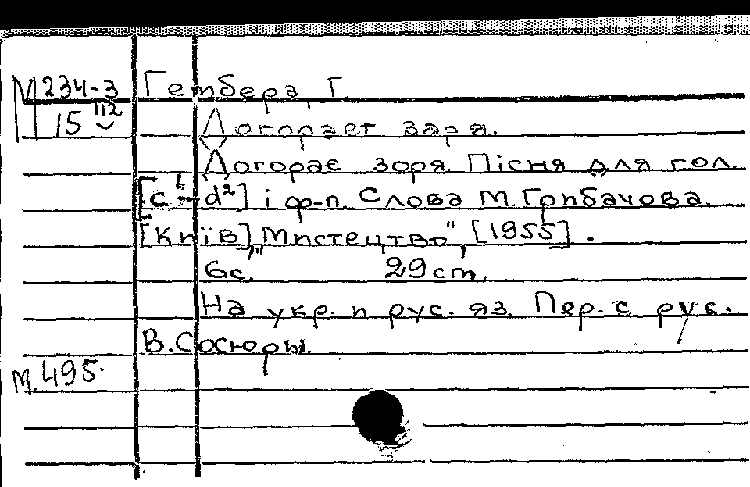 М 234-3 Гембера, Г.
15 112 Догорает заря.
Догорає зоря. Пісня для гол.
[c¹-d²] і ф-п. Слова М. Грибачова.
[Київ], "Мистецтво", [1955].
6с. 29 cm.
На укр. и рус. яз. Пер. с рус.
В. Сосюры.
М. 495.